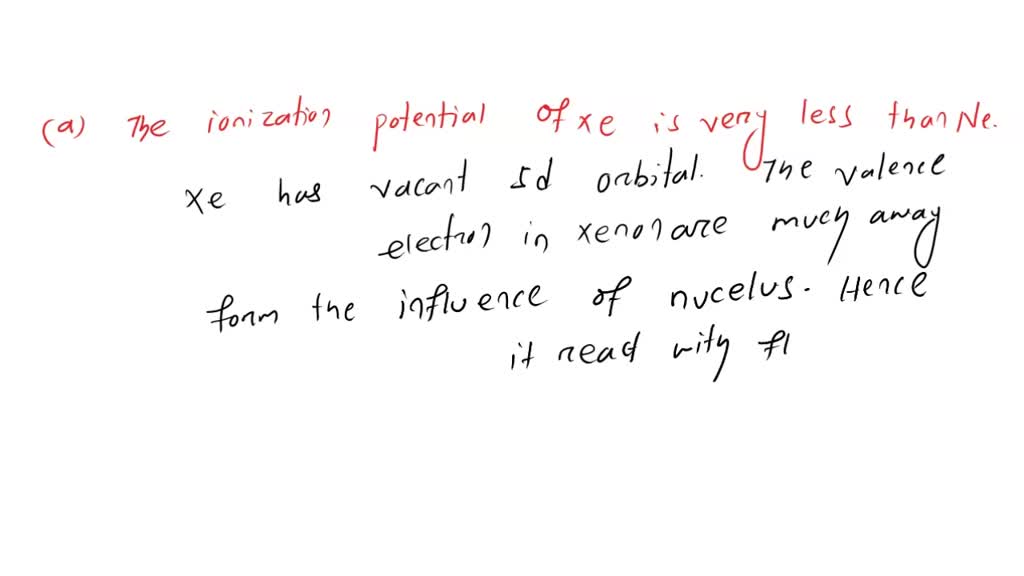 (a) The ionization potential of xe is very less than Ne.
xe has vacant 5d orbital. The valence
electron in xenon are much away
form the influence of nucelus. Hence
it read wity fl